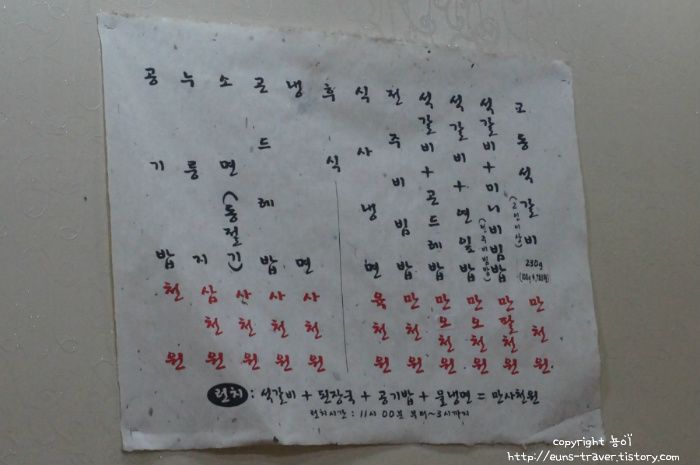 고동석갈비 230g 만천원
석갈비+미니비빔밥 (전주비빔밥) 만팔천원
석갈비+연잎밥 만오천원
석갈비+곤드레밥 만오천원
전주비빔밥 만천원
식사냉면 육천원
후식
냉면 사천원
곤드레밥 사천원
소면(동절기) 사천원
누룽지 삼천원
공기밥 천원
런치 : 석갈비 + 된장국 + 공기밥 + 물냉면 = 만사천원
런치시간 : 11시 00분 부터~3시까지
copyright 능이
http://euns-traver.tistory.com